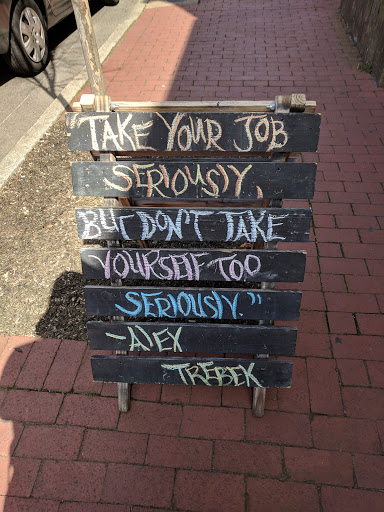 "TAKE YOUR JOB
SERIOUSLY,
BUT DON'T TAKE
YOURSELF TOO
SERIOUSLY."
-ALEX
TREBEK